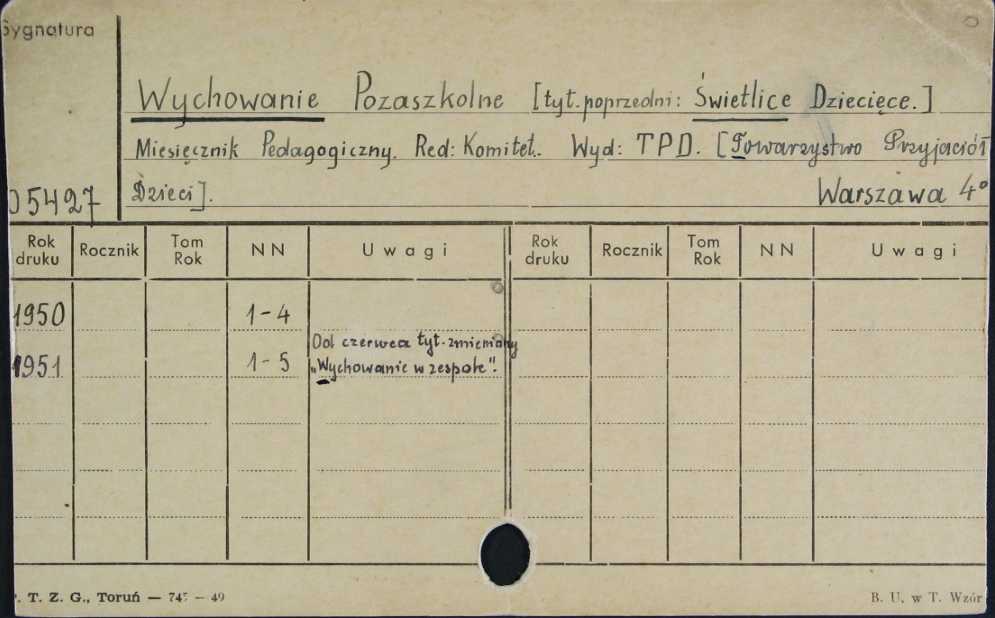 Sygnatura
Wychowanie Pozaszkolne [tyt. poprzedni: Świetlice Dziecięce.]
Miesięcznik Pedagogiczny. Red: Komitet. Wyd: TPD. [Towarzystwo Przyjaciół
05427 Dzieci]. Warszawa 4°
Rok druku Rocznik Tom Rok NN Uwagi Rok druku Rocznik Tom Rok NN Uwagi
1950 1-4
Od czerwca tyt. zmieniony
1951 1-5 „Wychowanie w zespole".
P. T. Z. G., Toruń — 745 — 49 B. U. w T. Wzór